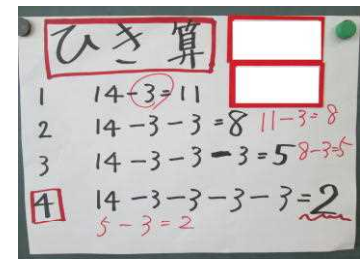 ひき算
1 14-3=11
2 14-3-3=8 11-3=8
3 14-3-3-3=5 8-3=5
4 14-3-3-3-3=2
5-3=2